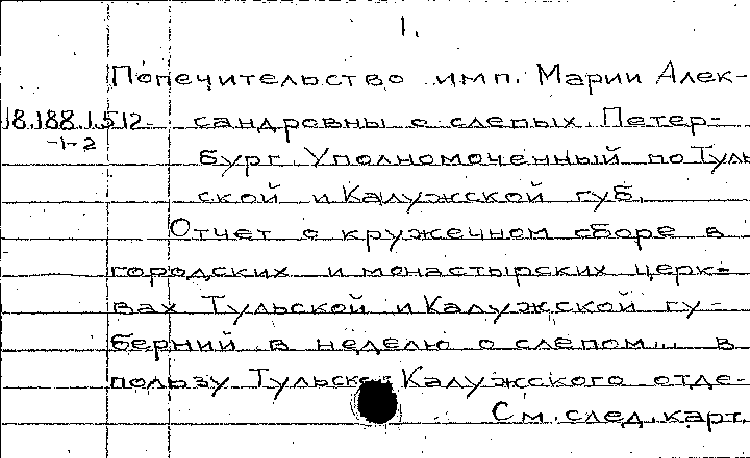 1.
Попечительство имп. Марии Алек-
18.188.1.512- сандровны о слепых. Петер-
-1-2
бург. Уполномоченный по Туль
ской и Калужской губ.
Отчет о кружечном сборе в
городских и монастырских церк-
вах Тульской и Калужской гу-
берний в неделю о слепом... в
пользу Тульско- Калужского отде-
См. след. карт.